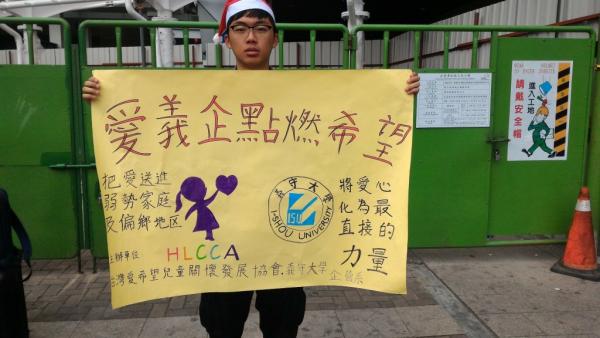 愛義企點燃希望
把愛送進
弱勢家庭
及偏鄉地區
將愛心
化為最
直接的
力量
義守大學
ISU
I-SHOU UNIVERSITY
主辦單位
HLCCA
台灣愛希望兒童關懷發展協會.義守大學企管系
進入工地
請戴安全帽